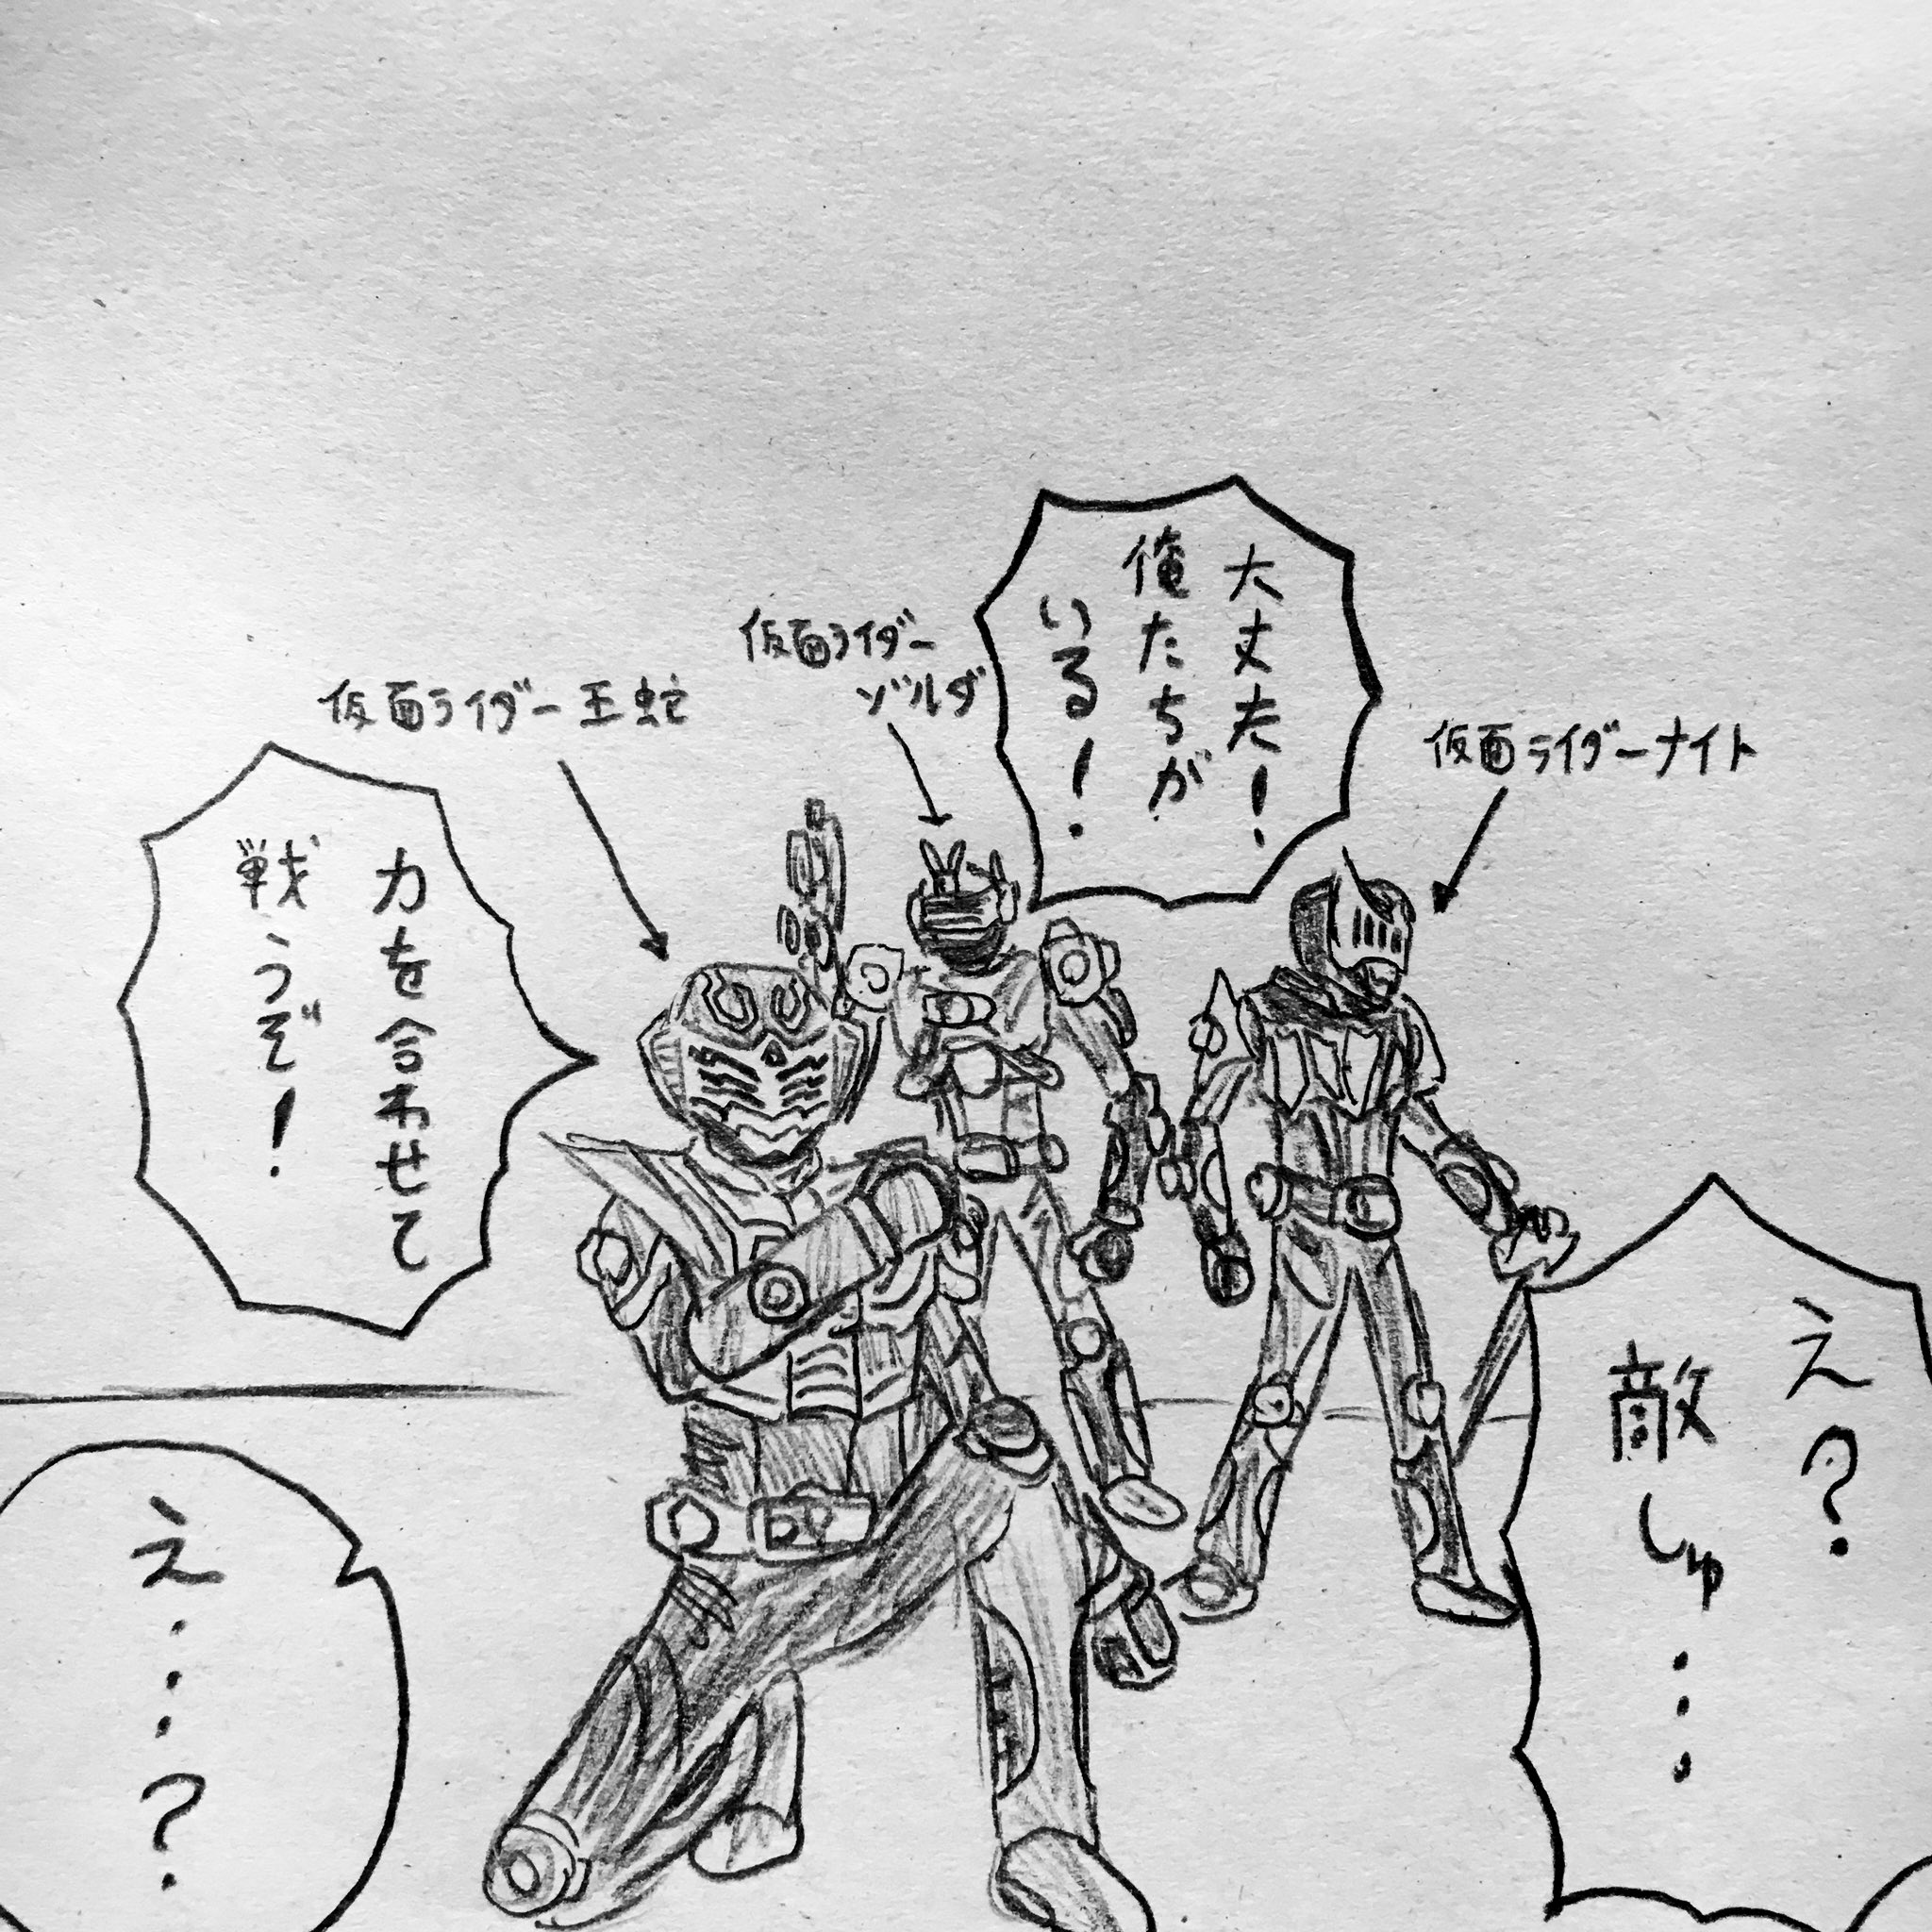 大丈夫！
俺たちが
いる！
仮面ライダー
ゾルダ
仮面ライダーナイト
仮面ライダー王蛇
力を合わせて
戦うぞ！
え？
敵しゅ…
え…？